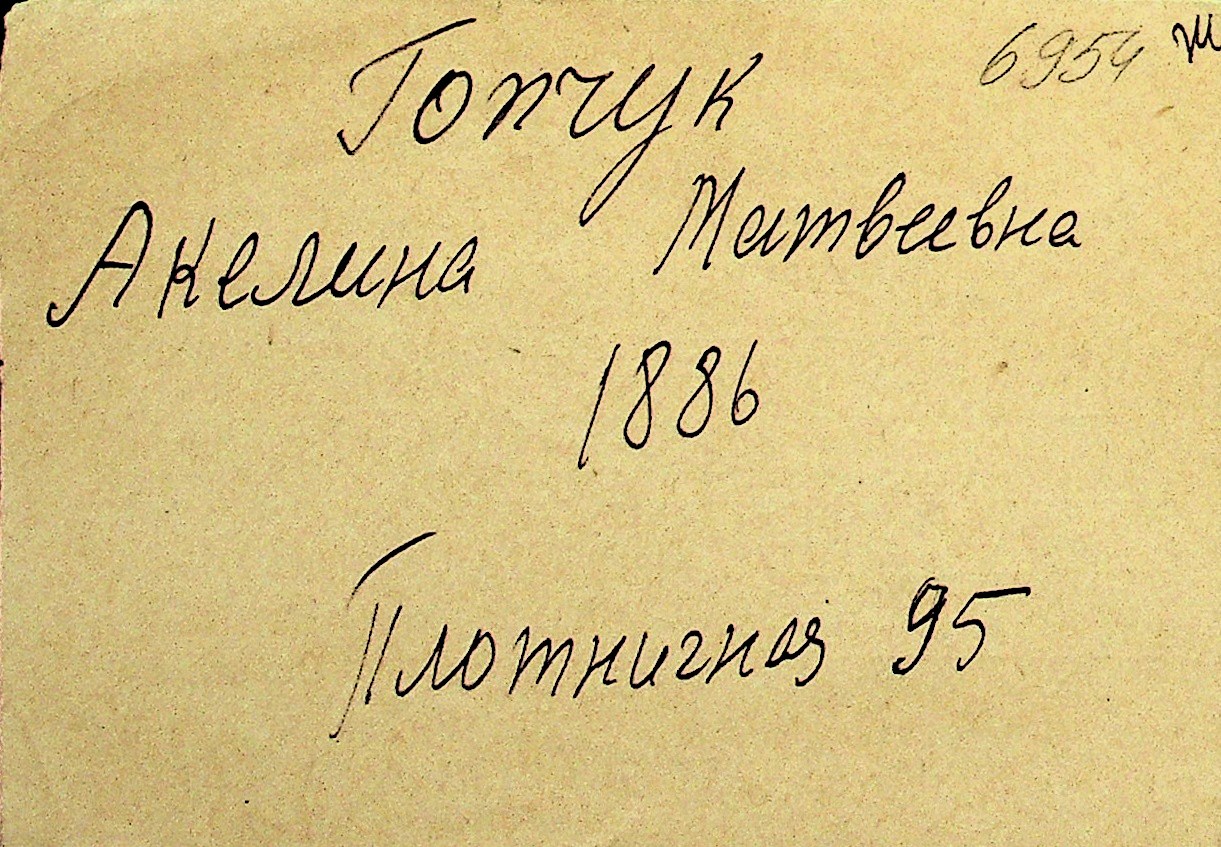 6954 ж
Гопчук
Акелина Матвеевна
1886
Плотничная 95